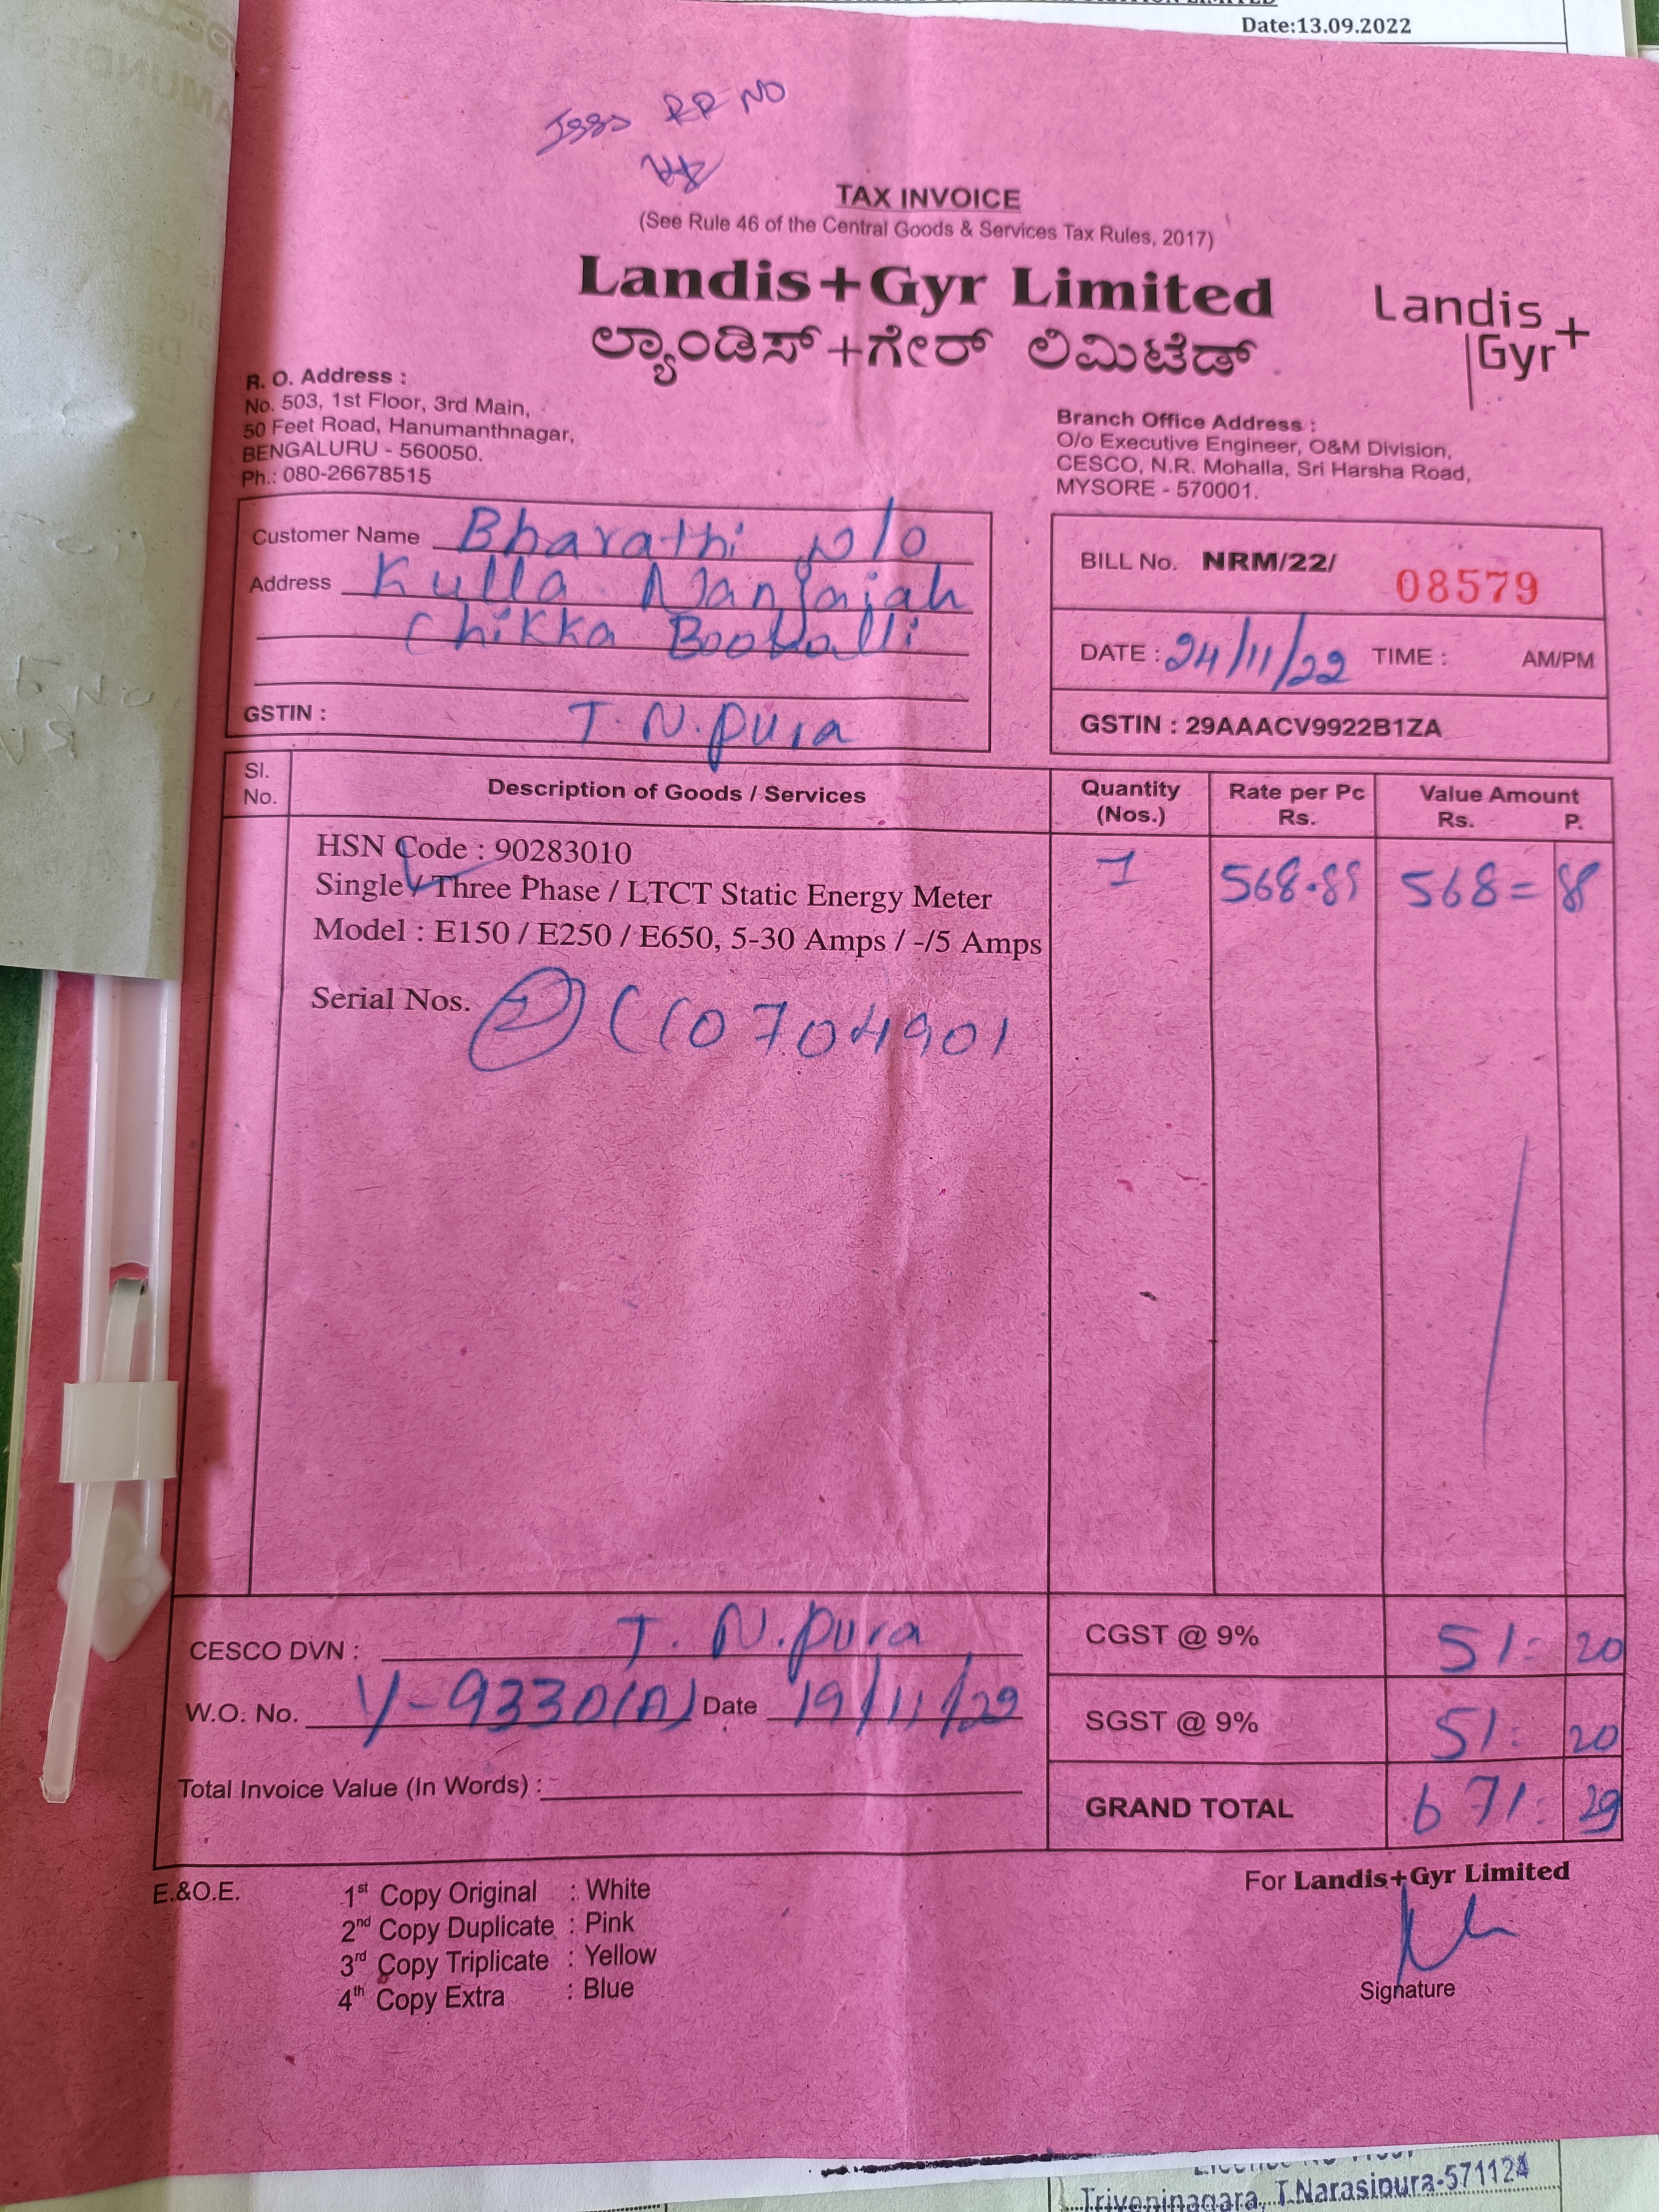 Date:13.09.2022
RR NO
TAX INVOICE
(See Rule 46 of the Central Goods & Services Tax Rules, 2017)
Landis+Gyr Limited
ಲ್ಯಾಂಡಿಸ್+ಗೇರ್ ಲಿಮಿಟೆಡ್
Landis
Gyr+
R. O. Address :
No. 503, 1st Floor, 3rd Main,
50 Feet Road, Hanumanthnagar,
BENGALURU - 560050.
Ph.: 080-26678515
Branch Office Address :
O/o Executive Engineer, O&M Division,
CESCO, N.R. Mohalla, Sri Harsha Road,
MYSORE - 570001.
Customer Name Bharathi w/o
Address Kulla Nanjaiah
Chikka
GSTIN : T. N. pura
BILL No. NRM/22/ 08579
DATE : 24/11/22 TIME : AM/PM
GSTIN : 29AAACV9922B1ZA
Sl. No. Description of Goods / Services Quantity (Nos.) Rate per Pc Rs. Value Amount Rs. P.
HSN Code : 90283010
Single / Three Phase / LTCT Static Energy Meter 1 568.89 568=
Model : E150 / E250 / E650, 5-30 Amps / -/5 Amps
Serial Nos. 07704901
CESCO DVN : T. N. pura
W.O. No. Y-9330(A) Date 19/11/22
Total Invoice Value (In Words) :
CGST @ 9% 51: 20
SGST @ 9% 51: 20
GRAND TOTAL 671: 29
E.&O.E.
1st Copy Original : White
2nd Copy Duplicate : Pink
3rd Copy Triplicate : Yellow
4th Copy Extra : Blue
For Landis+Gyr Limited
Signature
Triveninagara, T.Narasipura-571124